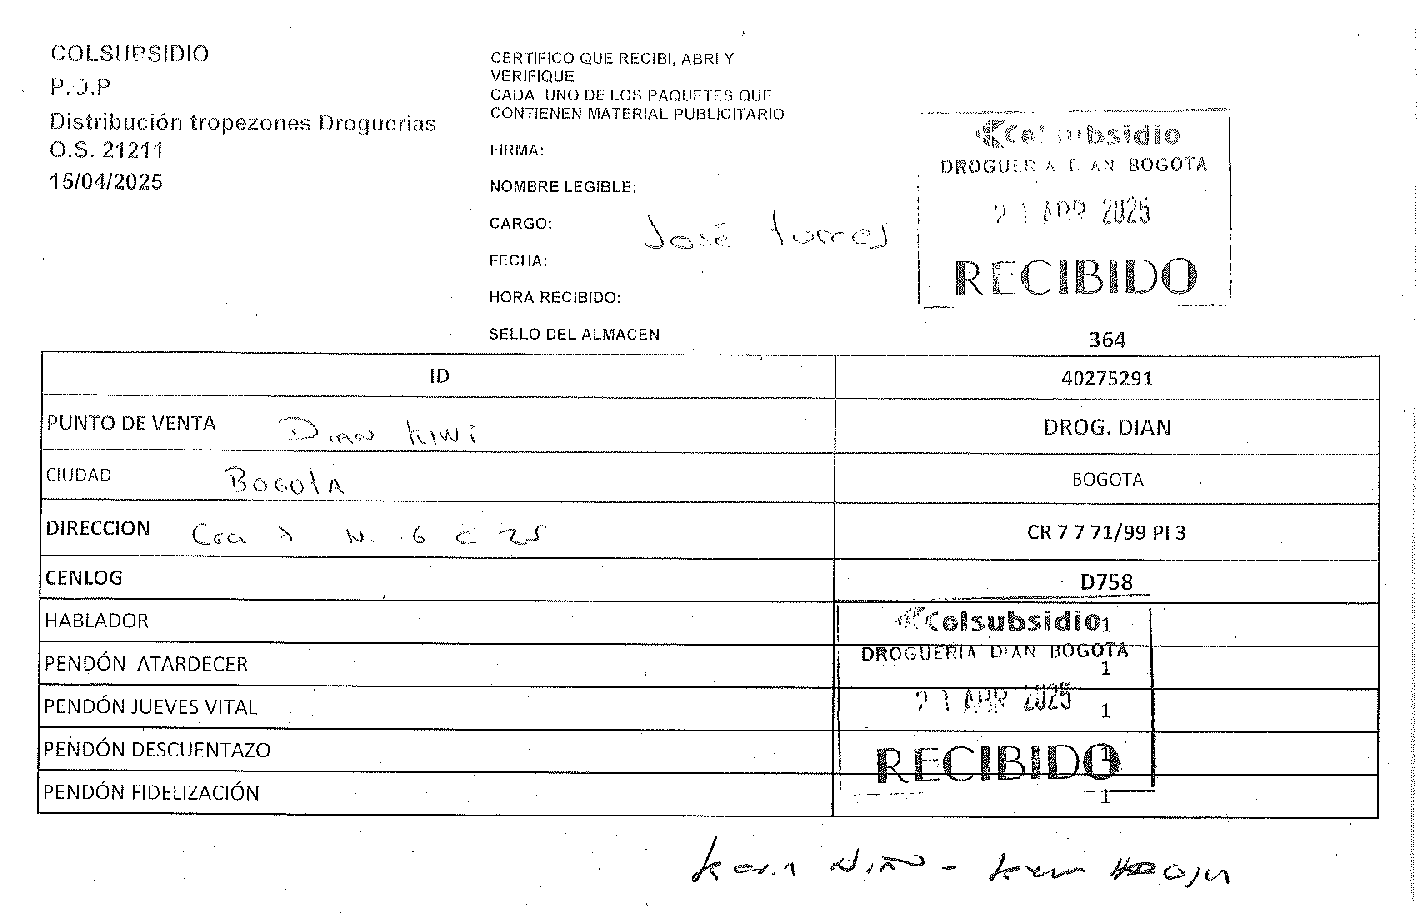 COLSUBSIDIO
P.O.P
Distribución tropezones Droguerias
O.S. 21211
15/04/2025
CERTIFICO QUE RECIBI, ABRI Y
VERIFIQUE
CADA UNO DE LOS PAQUETES QUE
CONTIENEN MATERIAL PUBLICITARIO
FIRMA:
NOMBRE LEGIBLE:
CARGO:
José Torres
FECHA:
HORA RECIBIDO:
SELLO DEL ALMACEN
Colsubsidio
DROGUERIA DIAN BOGOTA
21 ABR 2025
RECIBIDO
364
ID 40275291
PUNTO DE VENTA Dian Kiwi DROG. DIAN
CIUDAD Bogota BOGOTA
DIRECCION N. 6 C 25 CR 7 7 71/99 PI 3
CENLOG D758
HABLADOR 1
PENDÓN ATARDECER 1
PENDÓN JUEVES VITAL 1
PENDÓN DESCUENTAZO 1
PENDÓN FIDELIZACIÓN 1
Colsubsidio
DROGUERIA DIAN BOGOTA
21 ABR 2025
RECIBIDO
Niño -